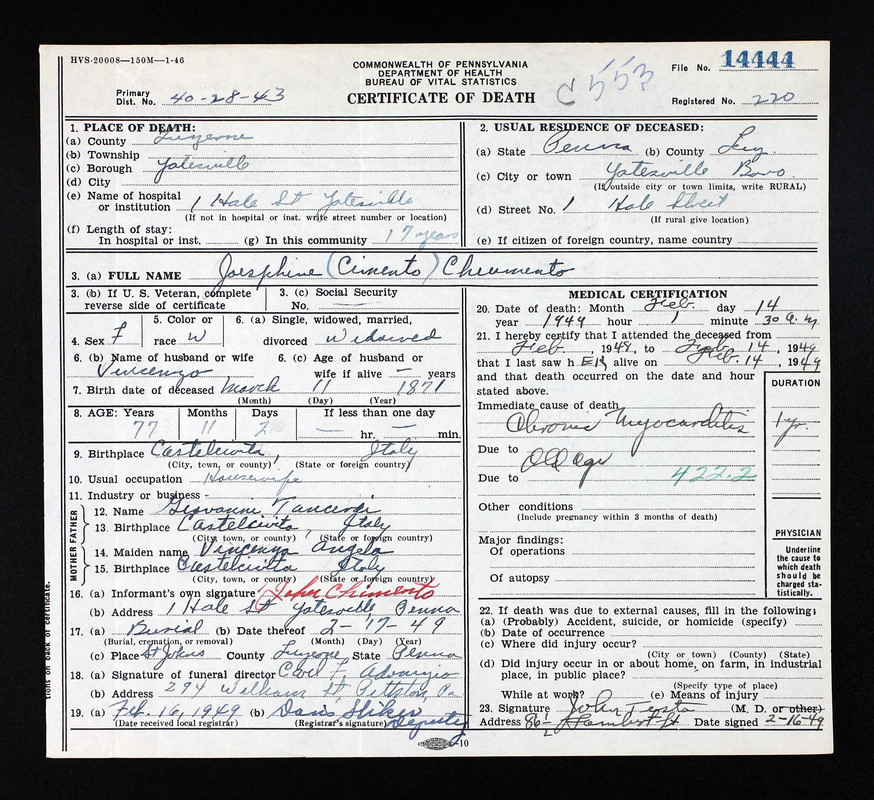 HVS-20008—150M—1-46
COMMONWEALTH OF PENNSYLVANIA
DEPARTMENT OF HEALTH
BUREAU OF VITAL STATISTICS
CERTIFICATE OF DEATH
C 553
File No. 14444
Primary Dist. No. 40-28-43
Registered No. 220
1. PLACE OF DEATH:
(a) County Luzerne
(b) Township
(c) Borough Yatesville
(d) City
(e) Name of hospital or institution 1 Hale St Yatesville
(If not in hospital or inst. write street number or location)
(f) Length of stay:
In hospital or inst. (g) In this community 17 years
2. USUAL RESIDENCE OF DECEASED:
(a) State Penna (b) County Luz.
(c) City or town Yatesville Boro.
(If outside city or town limits, write RURAL)
(d) Street No. 1 Hale Street
(If rural give location)
(e) If citizen of foreign country, name country
3. (a) FULL NAME Joesphine (Cimento) Cheumento
3. (b) If U. S. Veteran, complete reverse side of certificate
3. (c) Social Security No. —
4. Sex F
5. Color or race W
6. (a) Single, widowed, married, divorced Widowed
6. (b) Name of husband or wife Vincenzo
6. (c) Age of husband or wife if alive — years
7. Birth date of deceased March 11 1871
(Month) (Day) (Year)
8. AGE: Years Months Days If less than one day
77 11 2 — hr. — min.
9. Birthplace Castelcivita, Italy
(City, town, or county) (State or foreign country)
10. Usual occupation Housewife
11. Industry or business -
FATHER
12. Name Giovanni Tancredi
13. Birthplace Castelcivita, Italy
(City, town, or county) (State or foreign country)
MOTHER
14. Maiden name Vincenza Angelo
15. Birthplace Castelcivita Italy
(City, town, or county) (State or foreign country)
16. (a) Informant's own signature Chimento
(b) Address 1 Hale St Yatesville Penna
17. (a) Burial (b) Date thereof 2-17-49
(Burial, cremation, or removal) (Month) (Day) (Year)
(c) Place St Johns County Luzerne State Penna
18. (a) Signature of funeral director Carl F. Adonizio
(b) Address 294 William St, Pittston, Pa
19. (a) Feb. 16, 1949 (b) Deputy
(Date received local registrar) (Registrar's signature)
MEDICAL CERTIFICATION
20. Date of death: Month Feb. day 14
year 1949 hour 1 minute 30 a. m
21. I hereby certify that I attended the deceased from
Feb. , 1948, to Feb. 14, 1949
that I last saw h ER alive on Feb. 14, 1949
and that death occurred on the date and hour stated above.
DURATION
Immediate cause of death
Chronic Myocarditis 1 yr.
Due to Old Age
Due to 422.2
Other conditions
(Include pregnancy within 3 months of death)
PHYSICIAN
Underline the cause to which death should be charged statistically.
Major findings:
Of operations
Of autopsy
22. If death was due to external causes, fill in the following:
(a) (Probably) Accident, suicide, or homicide (specify)
(b) Date of occurrence
(c) Where did injury occur?
(City or town) (County) (State)
(d) Did injury occur in or about home, on farm, in industrial place, in public place?
(Specify type of place)
While at work? (e) Means of injury
23. Signature John Testa (M. D. or other)
Address 86 Lambert St Date signed 2-16-49
tions on back of certificate.
-10